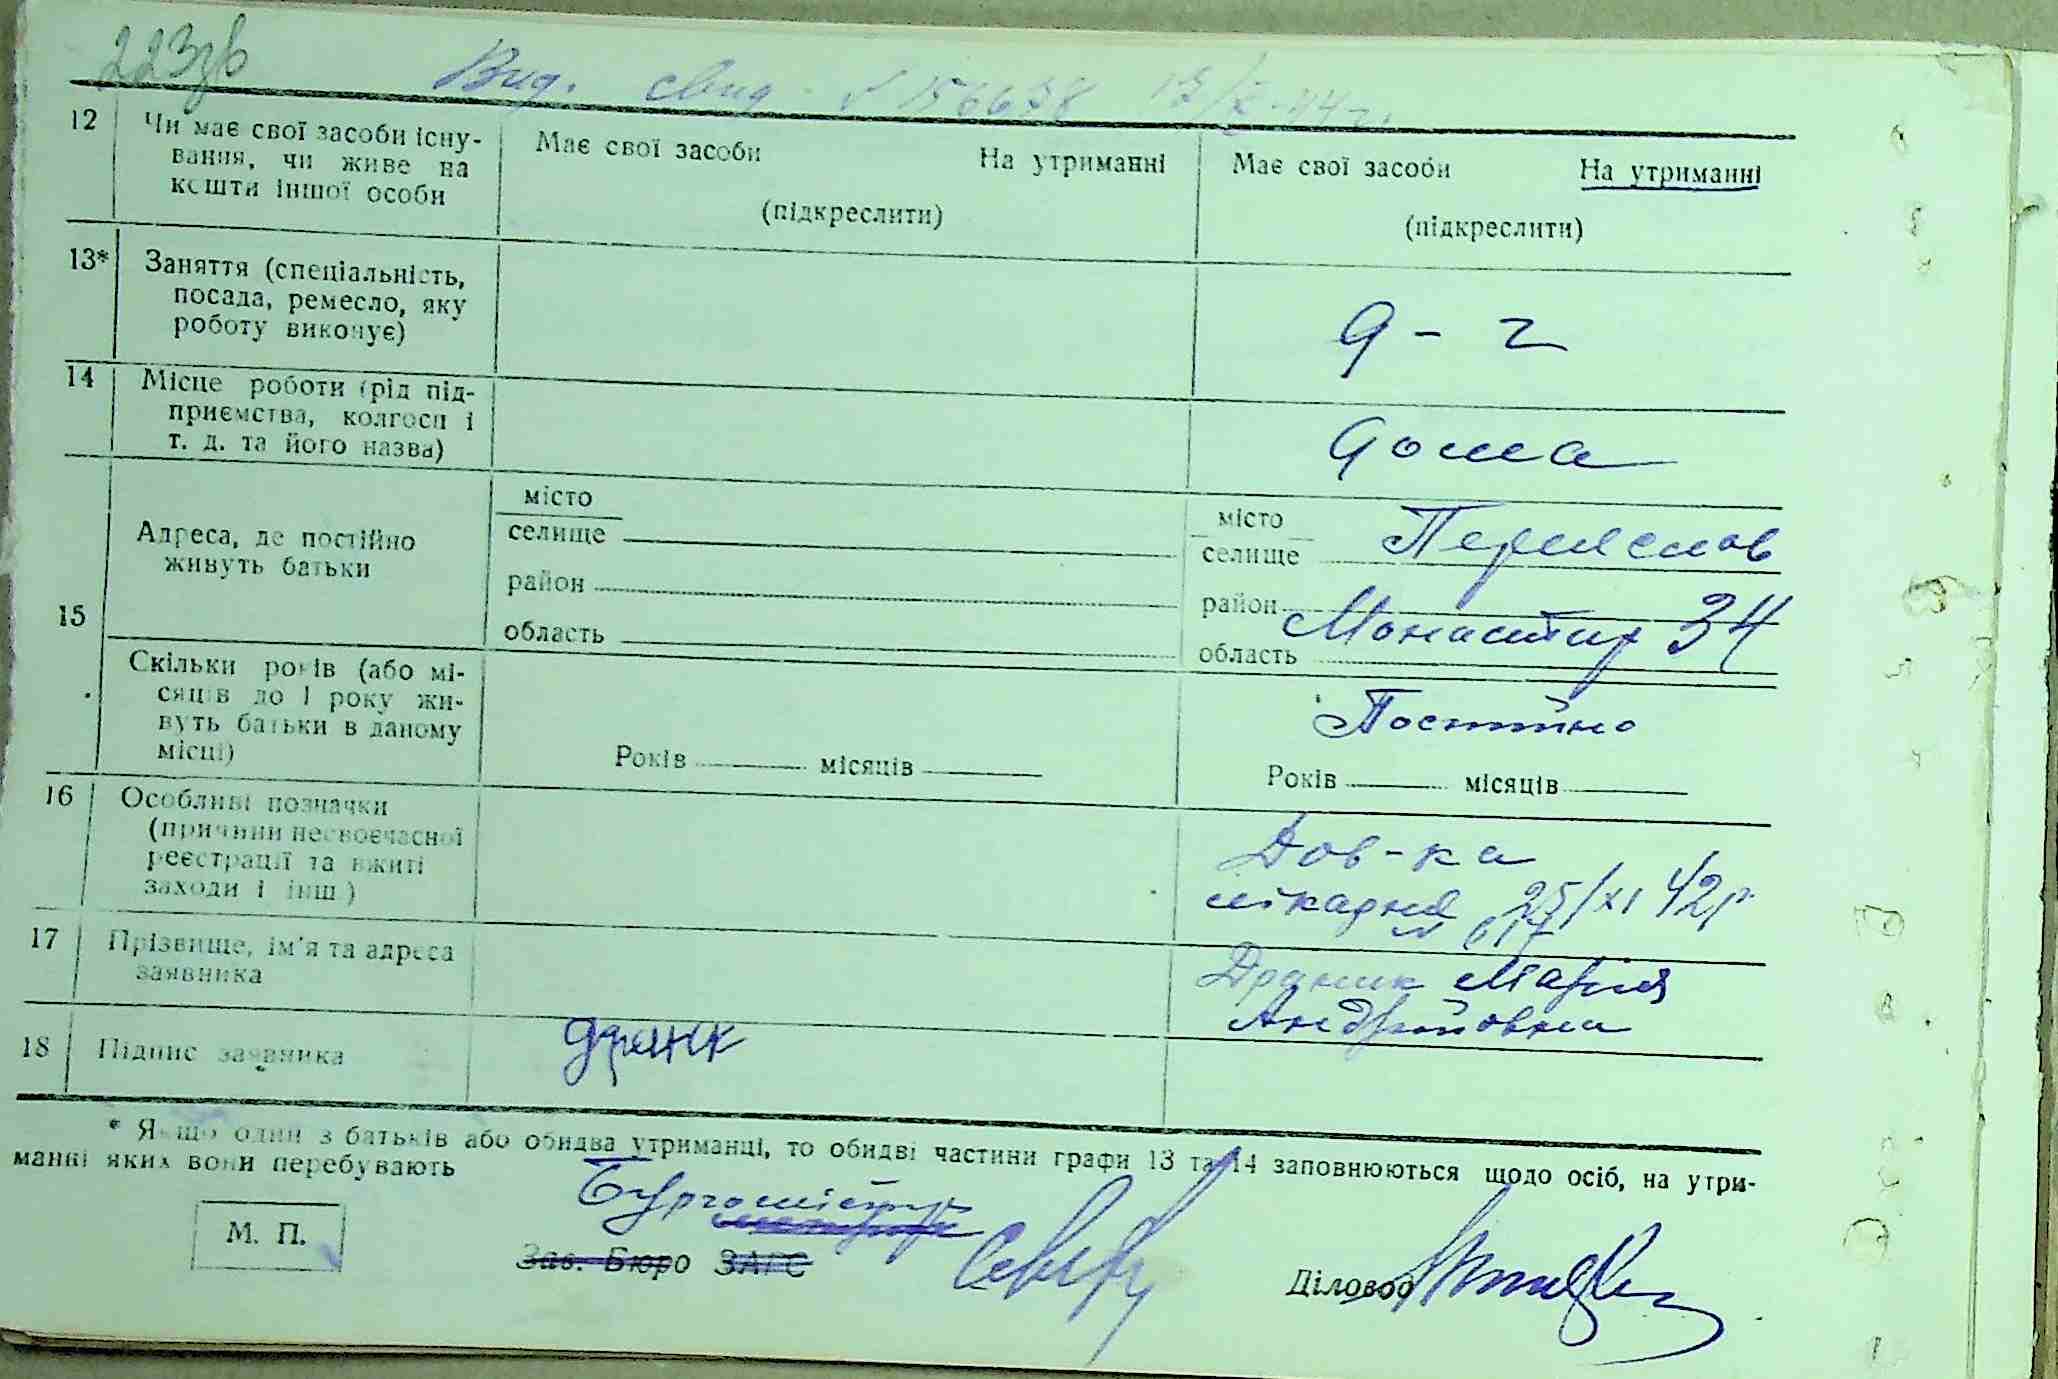 223зв
Вид. свид. № 156638 13/X-44 г.
12 Чи має свої засоби існу-
вання, чи живе на
кошти іншої особи
Має свої засоби На утриманні
(підкреслити)
Має свої засоби На утриманні
(підкреслити)
13* Заняття (спеціальність,
посада, ремесло, яку
роботу виконує)
д - г
14 Місце роботи (рід під-
приємства, колгосп і
т. д. та його назва)
дома
15 Адреса, де постійно
живуть батьки
місто
селище
район
область
місто
селище Переяслов
район Монастир 34
область
Скільки років (або мі-
сяців до 1 року жи-
вуть батьки в даному
місці)
Років місяців
Постійно
Років місяців
16 Особливі позначки
(причини несвоєчасної
реєстрації та вжиті
заходи і інш.)
Дов-ка
лікарня 25/XI 42р.
№ 617
17 Прізвище, ім'я та адреса
заявника
Марія
Андрійовна
18 Підпис заявника
* Якщо один з батьків або обидва утриманці, то обидві частини графи 13 та 14 заповнюються щодо осіб, на утри-
манні яких вони перебувають
Бургомістр
М. П.
Зав. Бюро ЗАГС
Діловод